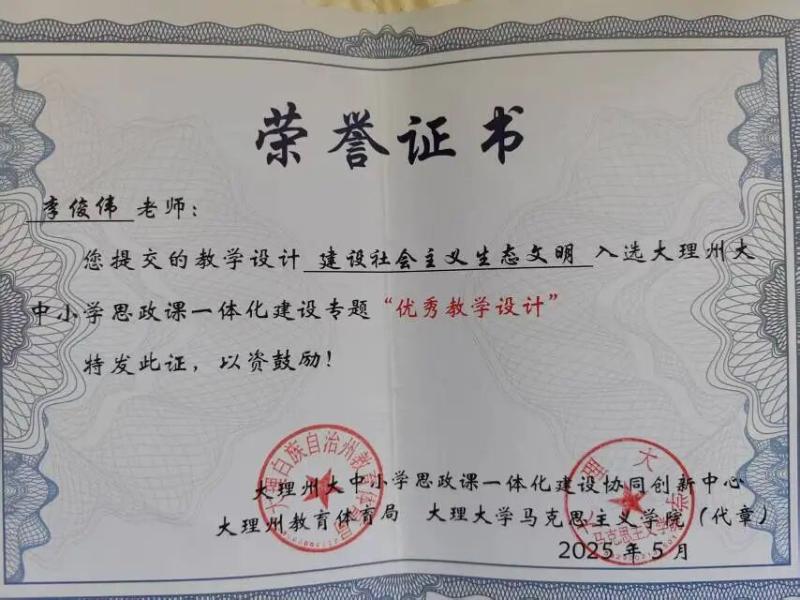 荣誉证书
李俊伟 老师：
您提交的教学设计 建设社会主义生态文明 入选大理州大
中小学思政课一体化建设专题“优秀教学设计”
特发此证，以资鼓励！
大理白族自治州教育体育局
大理大学
马克思主义学院
大理州大中小学思政课一体化建设协同创新中心
大理州教育体育局 大理大学马克思主义学院（代章）
2025年5月